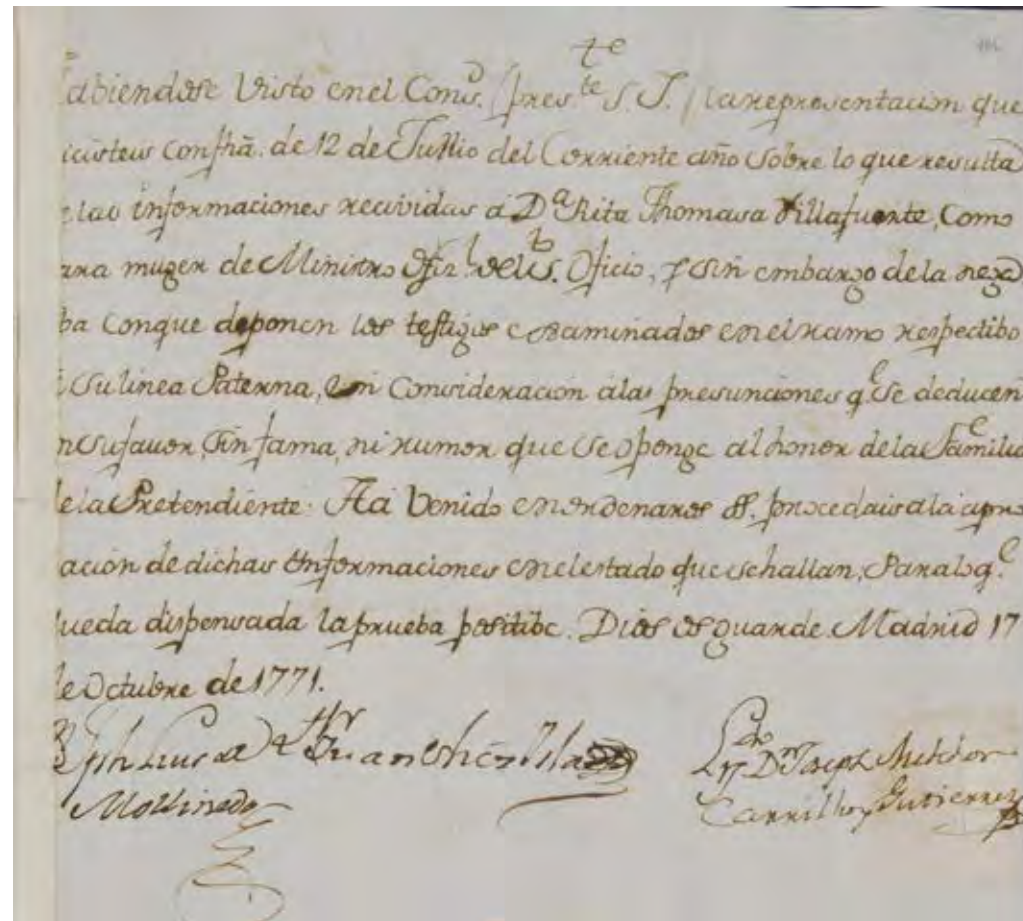 te
abiendose Visto en el Cons. (pres.te S. J.) la representacion que
icisteis con fha. de 12 de Jullio del Corriente año sobre lo que resulta
e las informaciones recividas á D.a Rita Thomasa Villafuerte, Como
ara muger de Ministro del S.to Oficio, y sin embargo de la nega
ba conque deponen los testigos examinados en el ramo respectibo
su linea Paterna, en Consideracion á las presunciones q.e se deducen
n su favor, sin fama, ni rumor que se oponge al honor de la Familia
e la Pretendiente. Há Venido en ordenaros procedais a la apro
acion de dichas Informaciones en el estado que se hallan, Para lo q.e
ueda dispensada la prueba positibe. Dios os guarde. Madrid 17
e Octubre de 1771.
Luis de Juan Lic.do Dn Joseph Melchor
Mollinedo Carrillo y Gutierrez